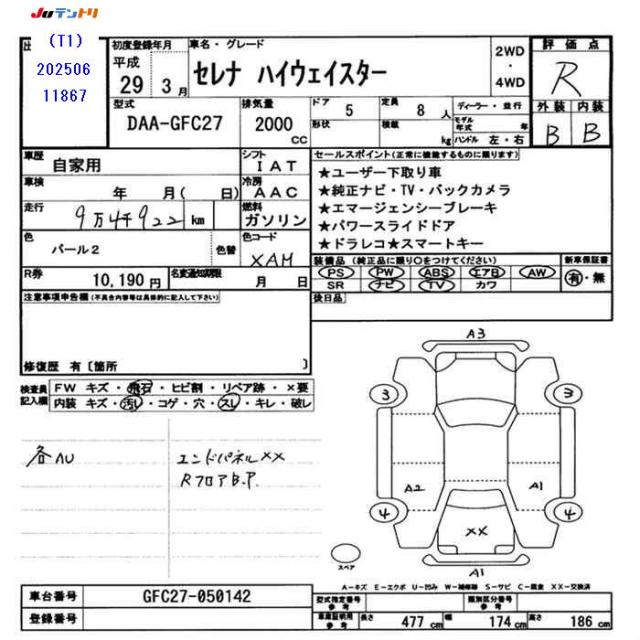 JUテントリ
(T1)
202506
11867
初度登録年月
平成
29年 3月
車名・グレード
セレナ ハイウェイスター
2WD
・
4WD
評価点
R
外装 内装
B B
型式
DAA-GFC27
排気量
2000
cc
ドア 5
形状
定員 8 人
積載 kg
ディーラー・並行
モデル年式 年
ハンドル 左・右
車歴 自家用
シフト IAT
車検 年 月( 日)
冷房 AAC
走行 9万4千922 km
燃料 ガソリン
色 パール2
色替
色コード XAH
R券 10,190 円
名変通知期限 月 日
セールスポイント(正常に機能するものに限ります)
★ユーザー下取り車
★純正ナビ・TV・バックカメラ
★エマージェンシーブレーキ
★パワースライドドア
★ドラレコ★スマートキー
装備品 (純正品に限り○をつけてください)
新車保証書
PS PW ABS エアB AW
有・無
SR ナビ TV カワ
後日品
注意事項申告欄(不具合内容等は具体的に記入して下さい)
修復歴 有〔箇所 〕
検査員記入欄
FW キズ・飛石・ヒビ割・リペア跡・×要
内装 キズ・汚レ・コゲ・穴・スレ・キレ・破レ
各AU
エンドパネルXX
RフロアB.P.
A3
3
3
A2
A1
4
4
XX
A1
スペア
A-キズ E-エクボ U-凹み W-補修跡 S-サビ C-腐食 XX-交換済
車台番号 GFC27-050142
登録番号
型式指定番号 参考
類別区分番号 参考
車庫証明用 参考
長さ 477 cm
幅 174 cm
高さ 186 cm